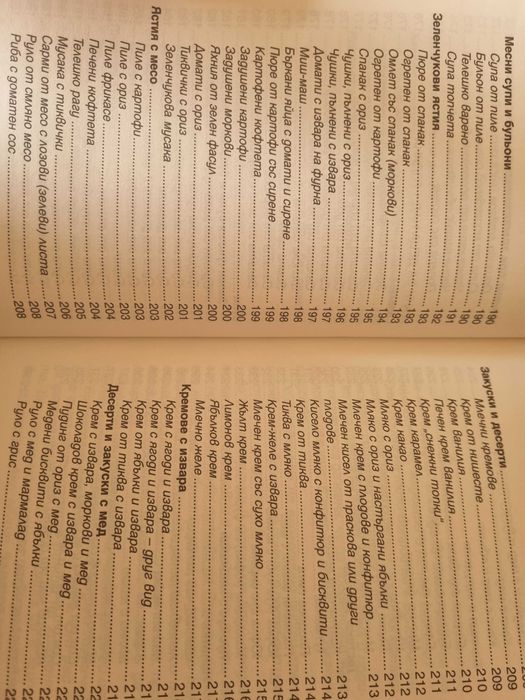 Месни супи и бульони
Супа от пиле 190
Бульон от пиле 190
Телешко варено 190
Супа топчета 191
Зеленчукови ястия 192
Пюре от спанак 193
Огретен от спанак 193
Омлет със спанак (моркови) 193
Огретен от картофи 194
Спанак с ориз 195
Чушки, пълнени с ориз 195
Чушки, пълнени с извара 196
Домати с извара на фурна 197
Миш-маш 197
Бъркани яйца с домати и сирене 198
Пюре от картофи със сирене 198
Картофени кюфтета 199
Задушени картофи 200
Задушени моркови 200
Яхния от зелен фасул 200
Домати с ориз 201
Тиквички с ориз 201
Зеленчукова мусака 202
Ястия с месо 203
Пиле с картофи 203
Пиле с ориз 203
Пиле фрикасе 204
Печени кюфтета 204
Телешко рагу 205
Мусака с тиквички 206
Сарми от месо с лозови (зелеви) листа 207
Руло от смляно месо 208
Риба с доматен сос 208
Закуски и десерти 209
Млечни кремове 209
Крем от нишесте 210
Крем ванилия 210
Печен крем ванилия 211
Крем „снежни топки“ 211
Крем карамел 212
Крем какао 212
Мляко с ориз 212
Мляко с ориз и настъргани ябълки 213
Млечен крем с плодове и конфитюр 213
Млечен кисел от праскова или други
плодове 213
Кисело мляко с конфитюр и бисквити 214
Крем от тиква 214
Тиква с мляко 214
Крем-желе с извара 215
Млечен крем със сухо мляко 215
Жълт крем
Лимонов крем
Ябълков крем
Млечно желе
Кремове с извара
Крем с ягоди и извара
Крем с ягоди и извара – друг вид
Крем от ябълки и извара
Крем от тиква с извара
Десерти и закуски с мед
Крем с извара, моркови и мед
Шоколадов крем с извара и мед
Пудинг от ориз с мед
Медени бисквити с ябълки
Руло с мед и мармалад
Руло с грис